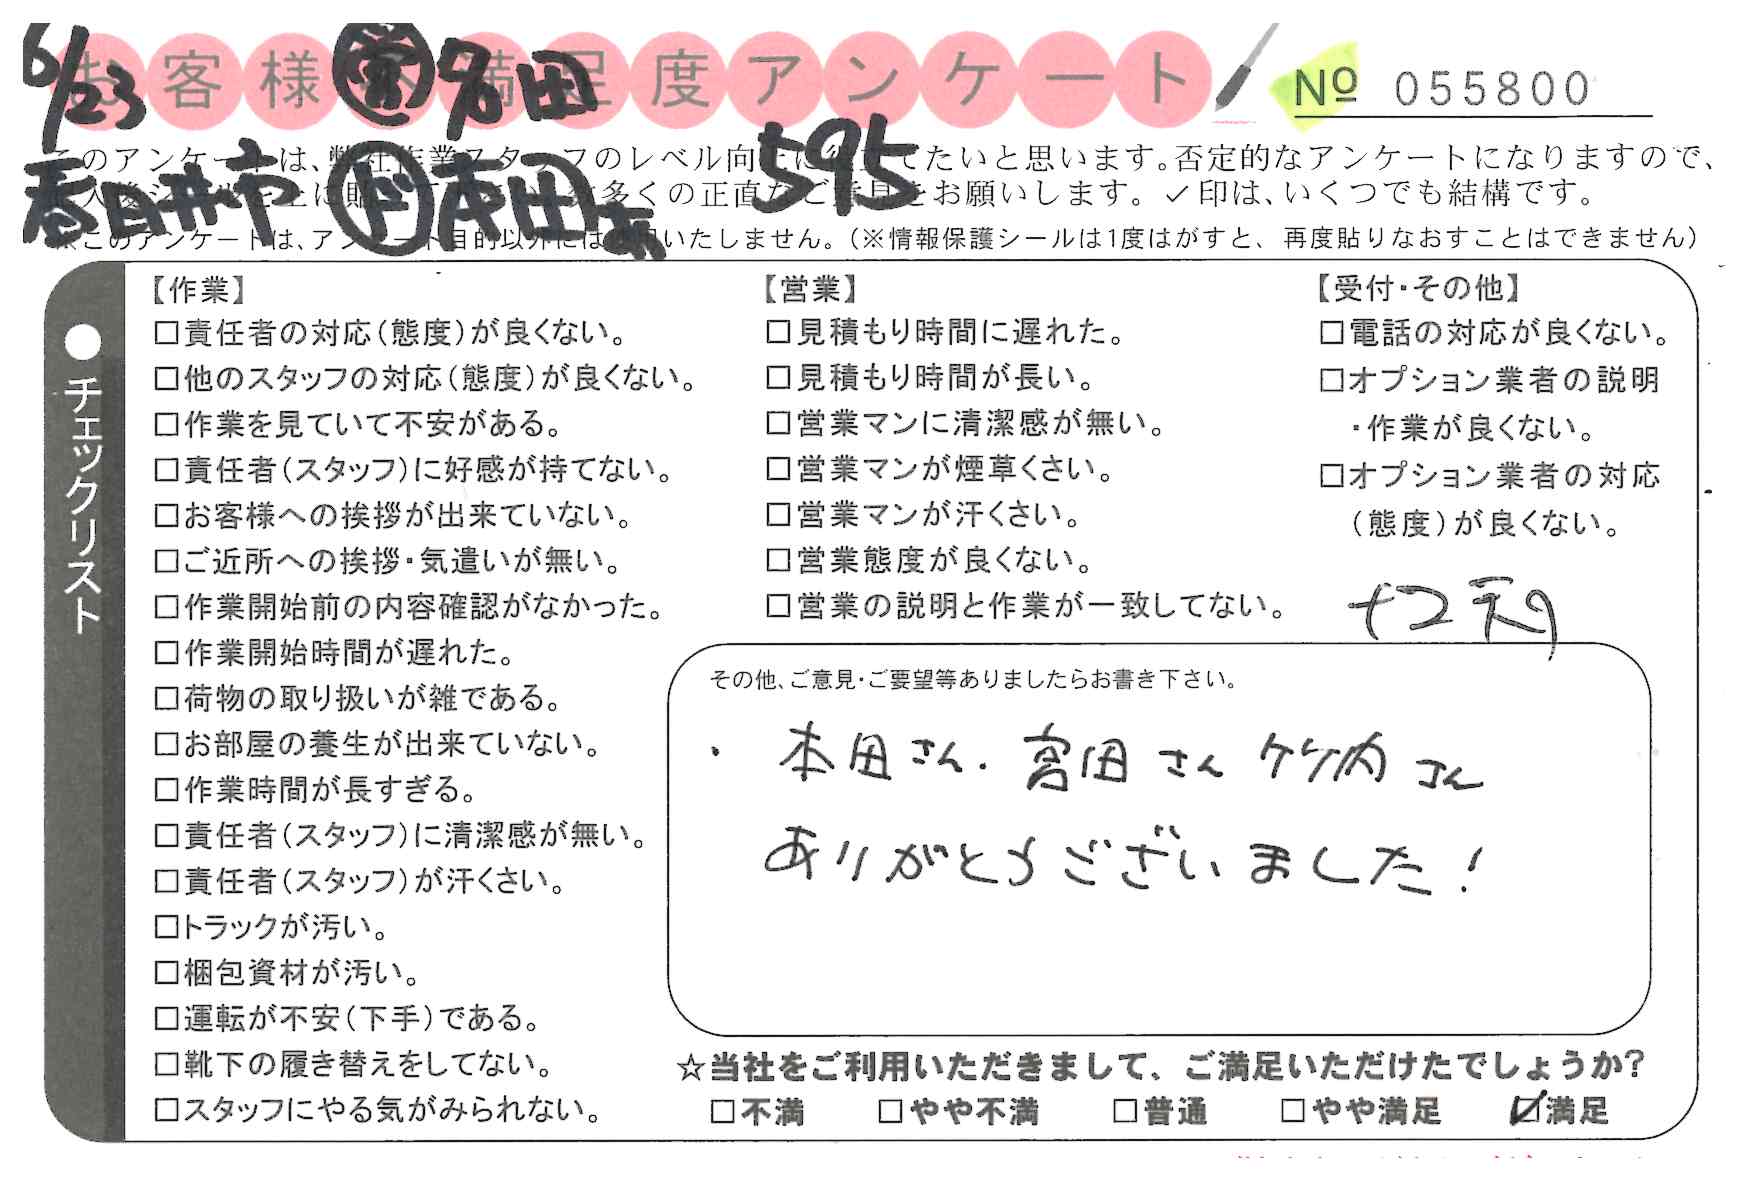 6/23 お客様不満足度アンケート 営 名田 № 055800
このアンケートは、弊社作業スタッフのレベル向上に役立てたいと思います。否定的なアンケートになりますので、
春日井市 ド 本田 595
記入後シールを上に貼って 数多くの正直なご意見をお願いします。✓印は、いくつでも結構です。
※このアンケートは、アンケート目的以外には使用いたしません。(※情報保護シールは1度はがすと、再度貼りなおすことはできません)
●チェックリスト
【作業】
□責任者の対応(態度)が良くない。
□他のスタッフの対応(態度)が良くない。
□作業を見ていて不安がある。
□責任者(スタッフ)に好感が持てない。
□お客様への挨拶が出来ていない。
□ご近所への挨拶・気遣いが無い。
□作業開始前の内容確認がなかった。
□作業開始時間が遅れた。
□荷物の取り扱いが雑である。
□お部屋の養生が出来ていない。
□作業時間が長すぎる。
□責任者(スタッフ)に清潔感が無い。
□責任者(スタッフ)が汗くさい。
□トラックが汚い。
□梱包資材が汚い。
□運転が不安(下手)である。
□靴下の履き替えをしてない。
□スタッフにやる気がみられない。
【営業】
□見積もり時間に遅れた。
□見積もり時間が長い。
□営業マンに清潔感が無い。
□営業マンが煙草くさい。
□営業マンが汗くさい。
□営業態度が良くない。
□営業の説明と作業が一致してない。
【受付・その他】
□電話の対応が良くない。
□オプション業者の説明
・作業が良くない。
□オプション業者の対応
(態度)が良くない。
その他、ご意見・ご要望等ありましたらお書き下さい。
・本田さん.宮田さん ケケ内さん
ありがとうございました!
☆当社をご利用いただきまして、ご満足いただけたでしょうか?
□不満 □やや不満 □普通 □やや満足 ☑満足